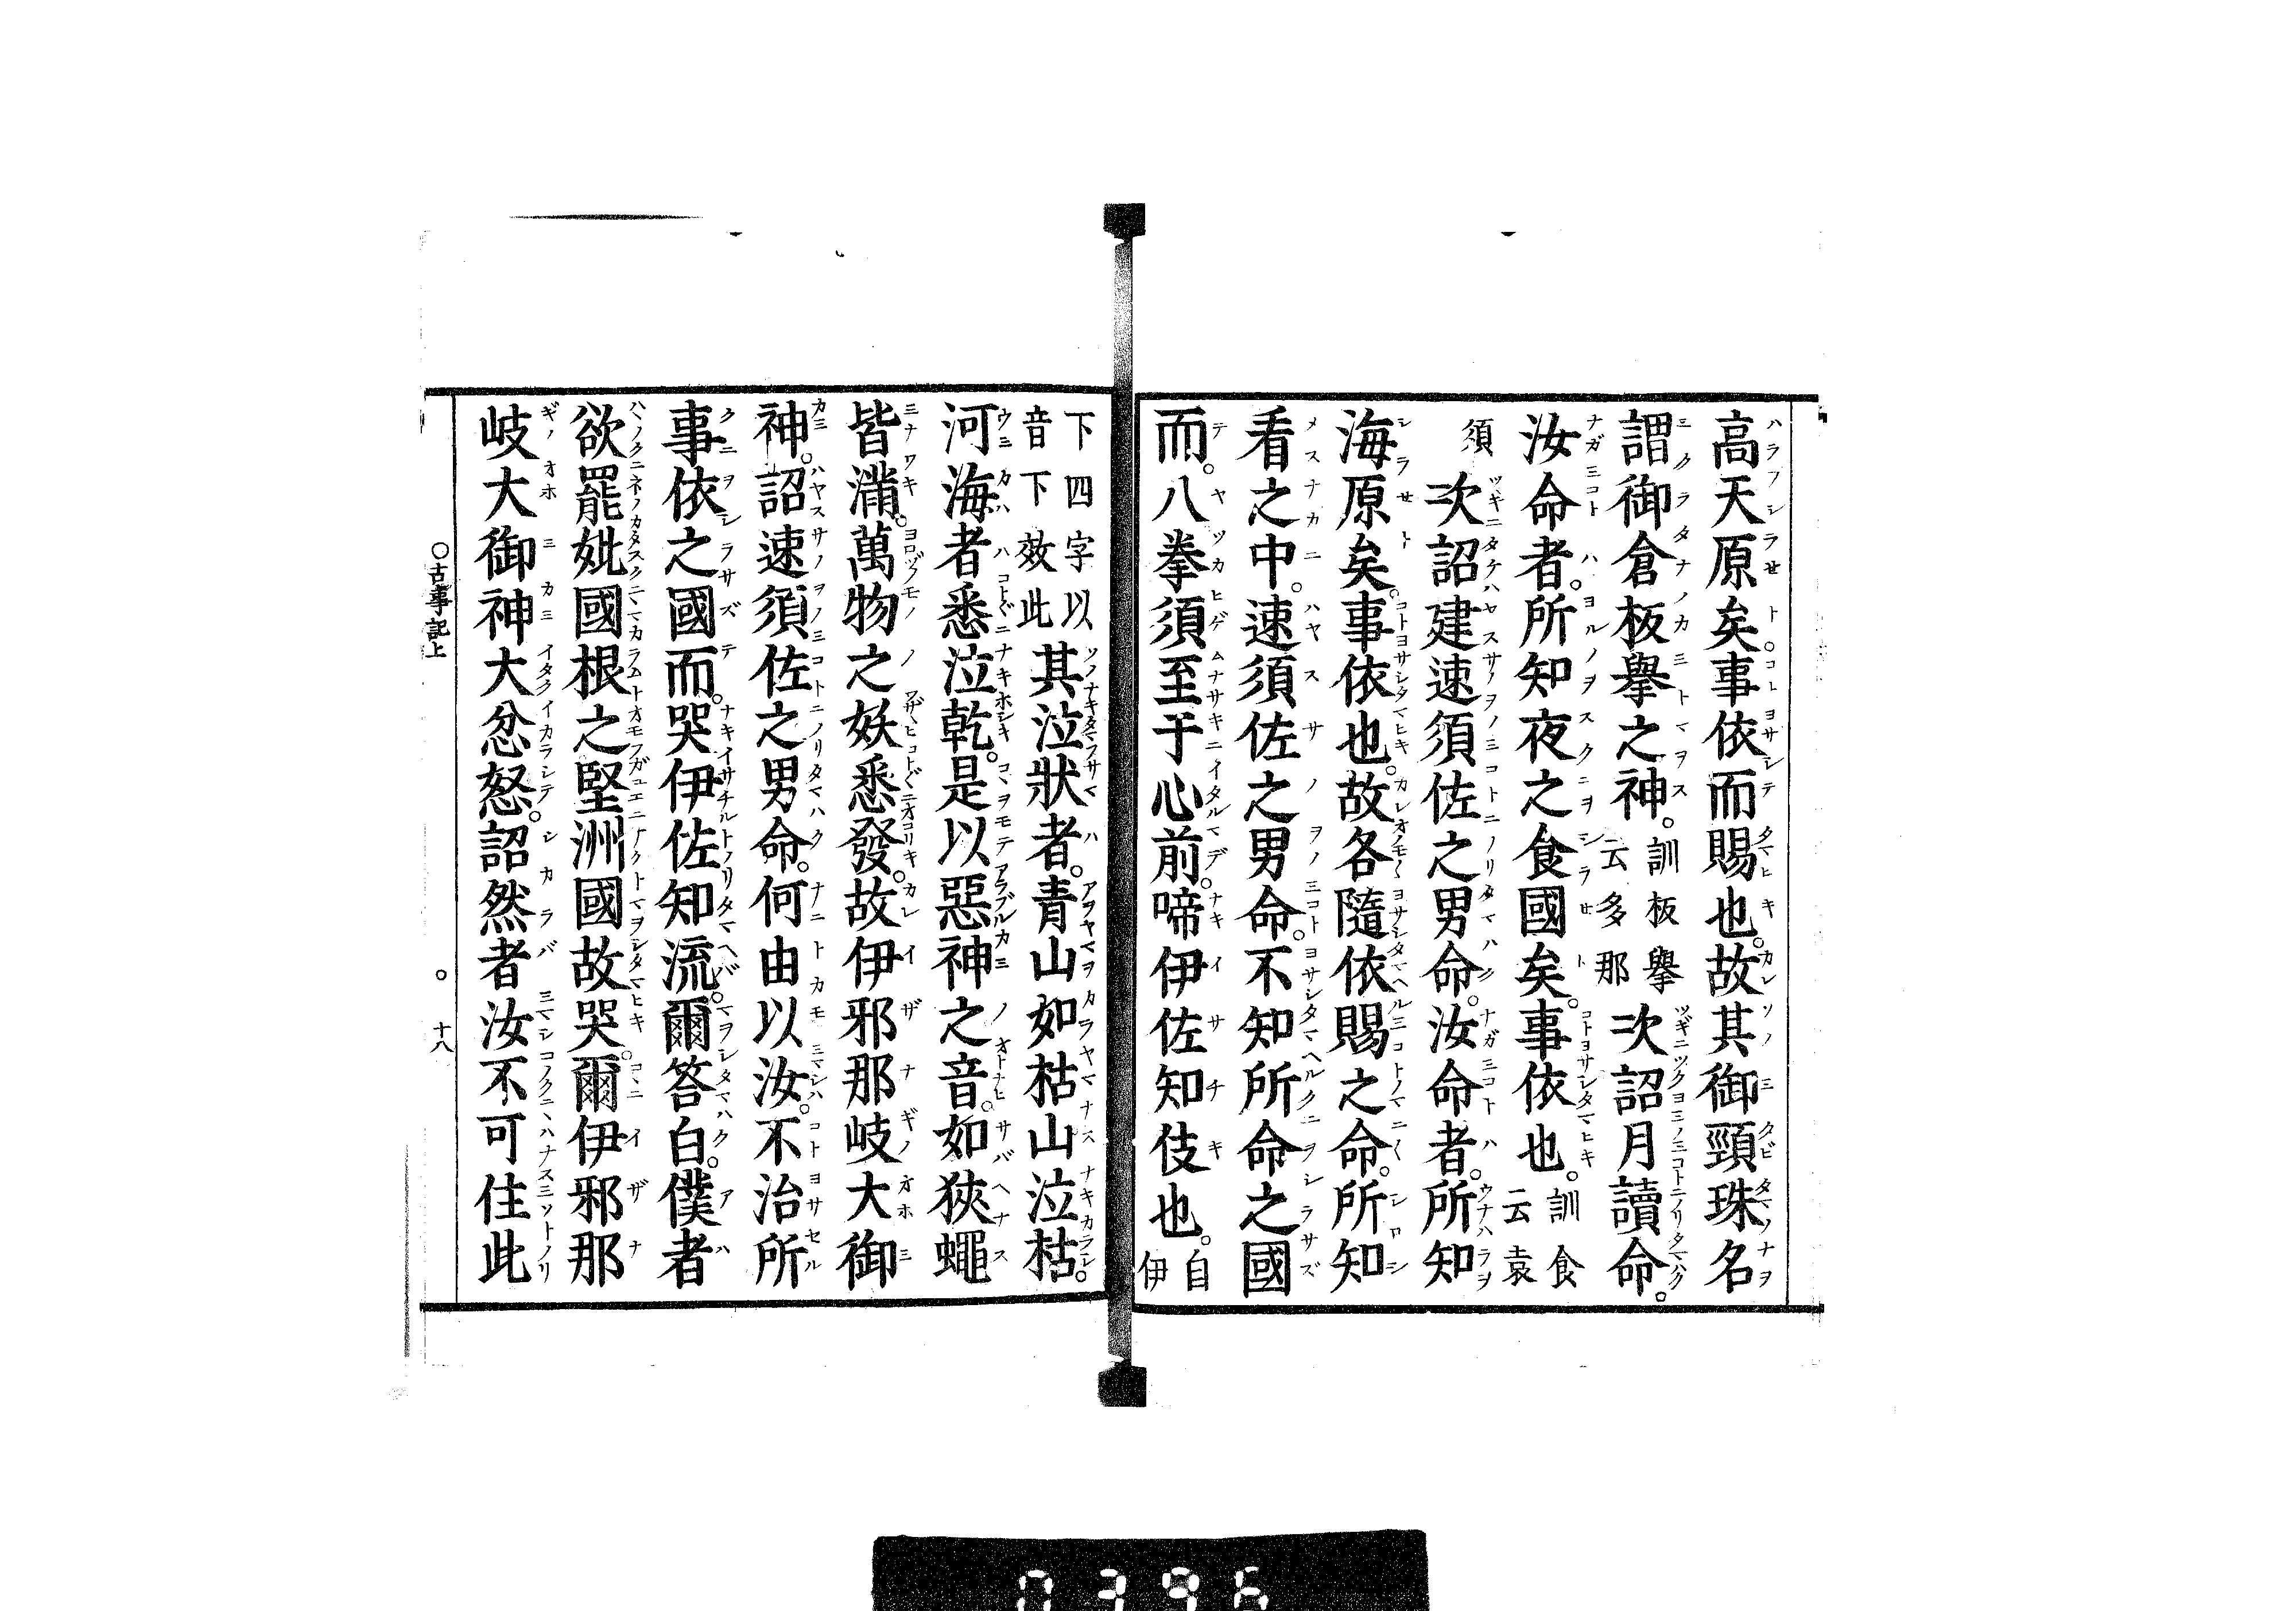 高天原矣事依而賜也。故其御頸珠名
謂御倉板擧之神。訓板擧云多那次詔月讀命。
汝命者。所知夜之食國矣。事依也。訓食云袁
須次詔建速須佐之男命。汝命者。所知
海原矣。事依也。故各隨依賜之命。所知
看之中。速須佐之男命。不知所命之國
而。八拳須至于心前。啼伊佐知伎也。自伊
下四字以音下效此其泣狀者。青山如枯山泣枯。
河海者悉泣乾。是以惡神之音。如狹蠅
皆滿。萬物之妖悉發。故伊邪那岐大御
神。詔速須佐之男命。何由以汝。不治所
事依之國而。哭伊佐知流。爾答白。僕者
欲罷妣國根之堅洲國故哭。爾伊邪那
岐大御神大忿怒。詔然者汝不可住此
○古事記上 ○ 十八
0396